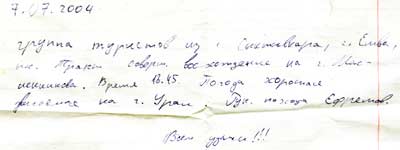 7.07.2004
группа туристов из г. Сыктывкара, г. Емва,
пос. Тракт соверш. восхождение на г. Мас-
ленникова. Время 16.45. Погода хорошая
на г. Урал. Рук. похода Ефремов.
Всем удачи!!!